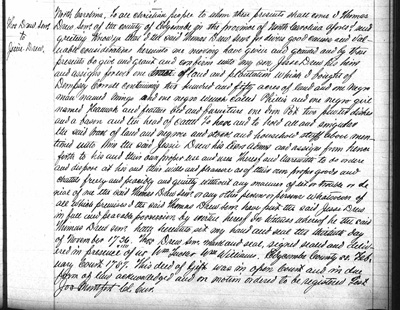 Thos Drew Senr.
to
Jesse Drew.
North Carolina. To all christian people to whom these presents shall come I Thomas
Drew Senr of the county of Edgecombe in the province of North Carolina afores'd send
greeting Know ye that I the said Thomas Drew Senr for divers good causes and val-
uable considerations hereunto me moving have given and granted and by these
presents do give and grant and confirm unto my son Jesse Drew his heirs
and assigns forever one of land and plantation which I bought of
containing two hundred and fifty acres of land and one negro
man named and one negro woman called Phillis and one negro girl
named Hannah and feather bed and furniture one iron Pot two pewter dishes
and a bason and ten head of cattle To have and to hold
the said of land and negroes and stock and household stuff above men-
tioned unto him the said Jesse Drew his heirs and assigns from hence
forth to his and their own proper use and uses thereof and therewith to do order
and dispose at his and their wills and pleasures as of their own proper goods and
chattles freely and peaceably and quietly without any manner of let or trouble or de-
nial of me the said Thomas Drew Senr or any other person or persons whatsoever of
all which premises I the said Thomas Drew Senr have put the said Jesse Drew
in full and peaceable possession by virtue hereof In witness whereof he the said
Thomas Drew Senr hath hereunto set my hand and seal the day
of November 1756. Thos Drew Senr mark and seal, signed sealed and deliv-
ered in presence of us Wm Williams. Edgecombe County ss. Feb-
ruary Court 1757. This deed of gift was in open Court and in due
form of law acknowledged and on motion ordered to be registered Test
Jos Montfort Clk Cur.